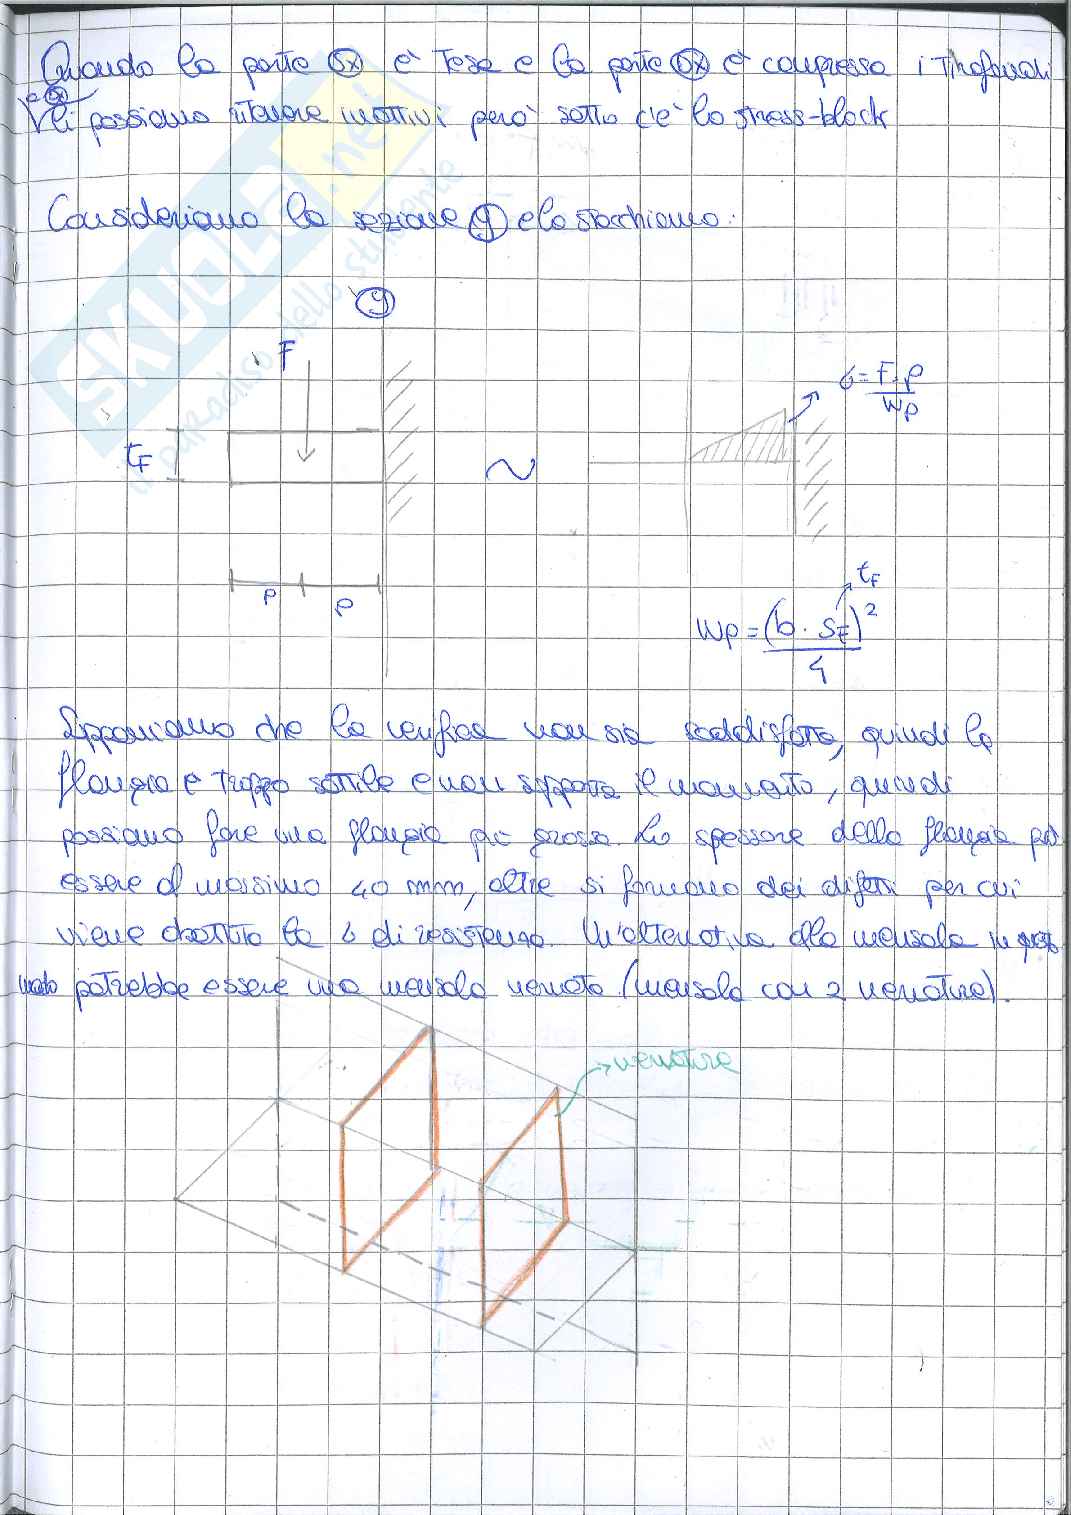 Quando la parte SX è tesa e la parte DX è compressa i tirafondi
e DX
li possiamo ritenere inattivi però sotto c'è lo stress-block
Consideriamo la sezione 9 e la stacchiamo:
9
F
tF
p
p
~
σ = F·p / Wp
tF
Wp = (b · SF)² / 4
Supponiamo che la verifica non sia soddisfatta, quindi la
flangia è troppo sottile e non supporta il momento, quindi
possiamo fare una flangia più grossa. Lo spessore della flangia può
essere al massimo 40 mm, oltre si formano dei difetti per cui
viene abbattuta la σ di resistenza. Un'alternativa alla mensola in questo
modo potrebbe essere una mensola nervata (mensola con 2 nervature).
nervature
SKUOLA.net
il paradiso dello studente